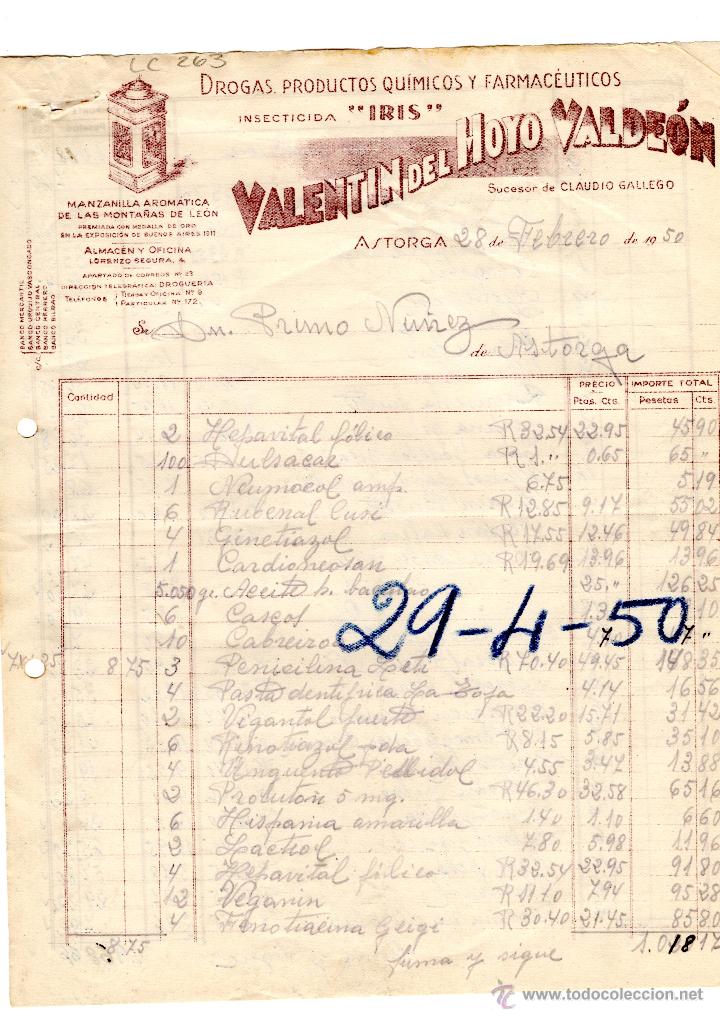 LC 263
DROGAS, PRODUCTOS QUÍMICOS Y FARMACÉUTICOS
INSECTICIDA "IRIS"
VALENTIN DEL HOYO VALDEÓN
Sucesor de CLAUDIO GALLEGO
MANZANILLA AROMATICA
DE LAS MONTAÑAS DE LEON
PREMIADA CON MEDALLA DE ORO
EN LA EXPOSICION DE BUENOS AIRES 1911
ALMACÉN Y OFICINA
LORENZO SEGURA, 4
APARTADO DE CORREOS Nº 23
DIRECCION TELEGRÁFICA: DROGUERIA
TELÉFONOS Tienda y Oficina Nº 9
Particular Nº 172
C/C.
BANCO MERCANTIL
BANCO URQUIJO VASCONGADO
BANCO CENTRAL
BANCO HERRERO
BANCO BILBAO
ASTORGA 28 de Febrero de 1950
Sr. Dn. Primo Núñez
de Astorga
Cantidad PRECIO IMPORTE TOTAL
Ptas. Cts. Pesetas Cts.
2 Hepavital fólico R 32.54 22.95 45 90
100 R 1." 0.65 65 "
1 Neumocol amp. 6.75 5 19
6 R 12.85 9.17 55 02
4 Ginetiazol R 17.55 12.46 49 84
1 Cardioneosan R 19.69 13.96 13 96
5.050 gr. Aceite h. bacalao 25," 126 25
6 Cascos 1.3 10
10 7 7 "
8 75 3 Penicilina Leti R 70.40 49.45 148 35
4 Pasta dentifrica La Toja 4.14 16 56
2 Vigantol fuerte R 22.20 15.71 31 42
6 R 8.15 5.85 35 10
4 Unguento Pellidol 4.55 3.47 13 88
2 5 mg. R 46.30 32.58 65 16
6 Hispania amarilla 1.40 1.10 6 60
2 Lacteol 7.80 5.98 11 96
4 Hepavital fólico R 32.54 22.95 91 80
12 Veganin R 11.10 7.94 95 28
4 Fenotiacina Geigi R 30.40 21.45 85 80
8.75 17
suma y sigue
29-4-50
www.todocoleccion.net